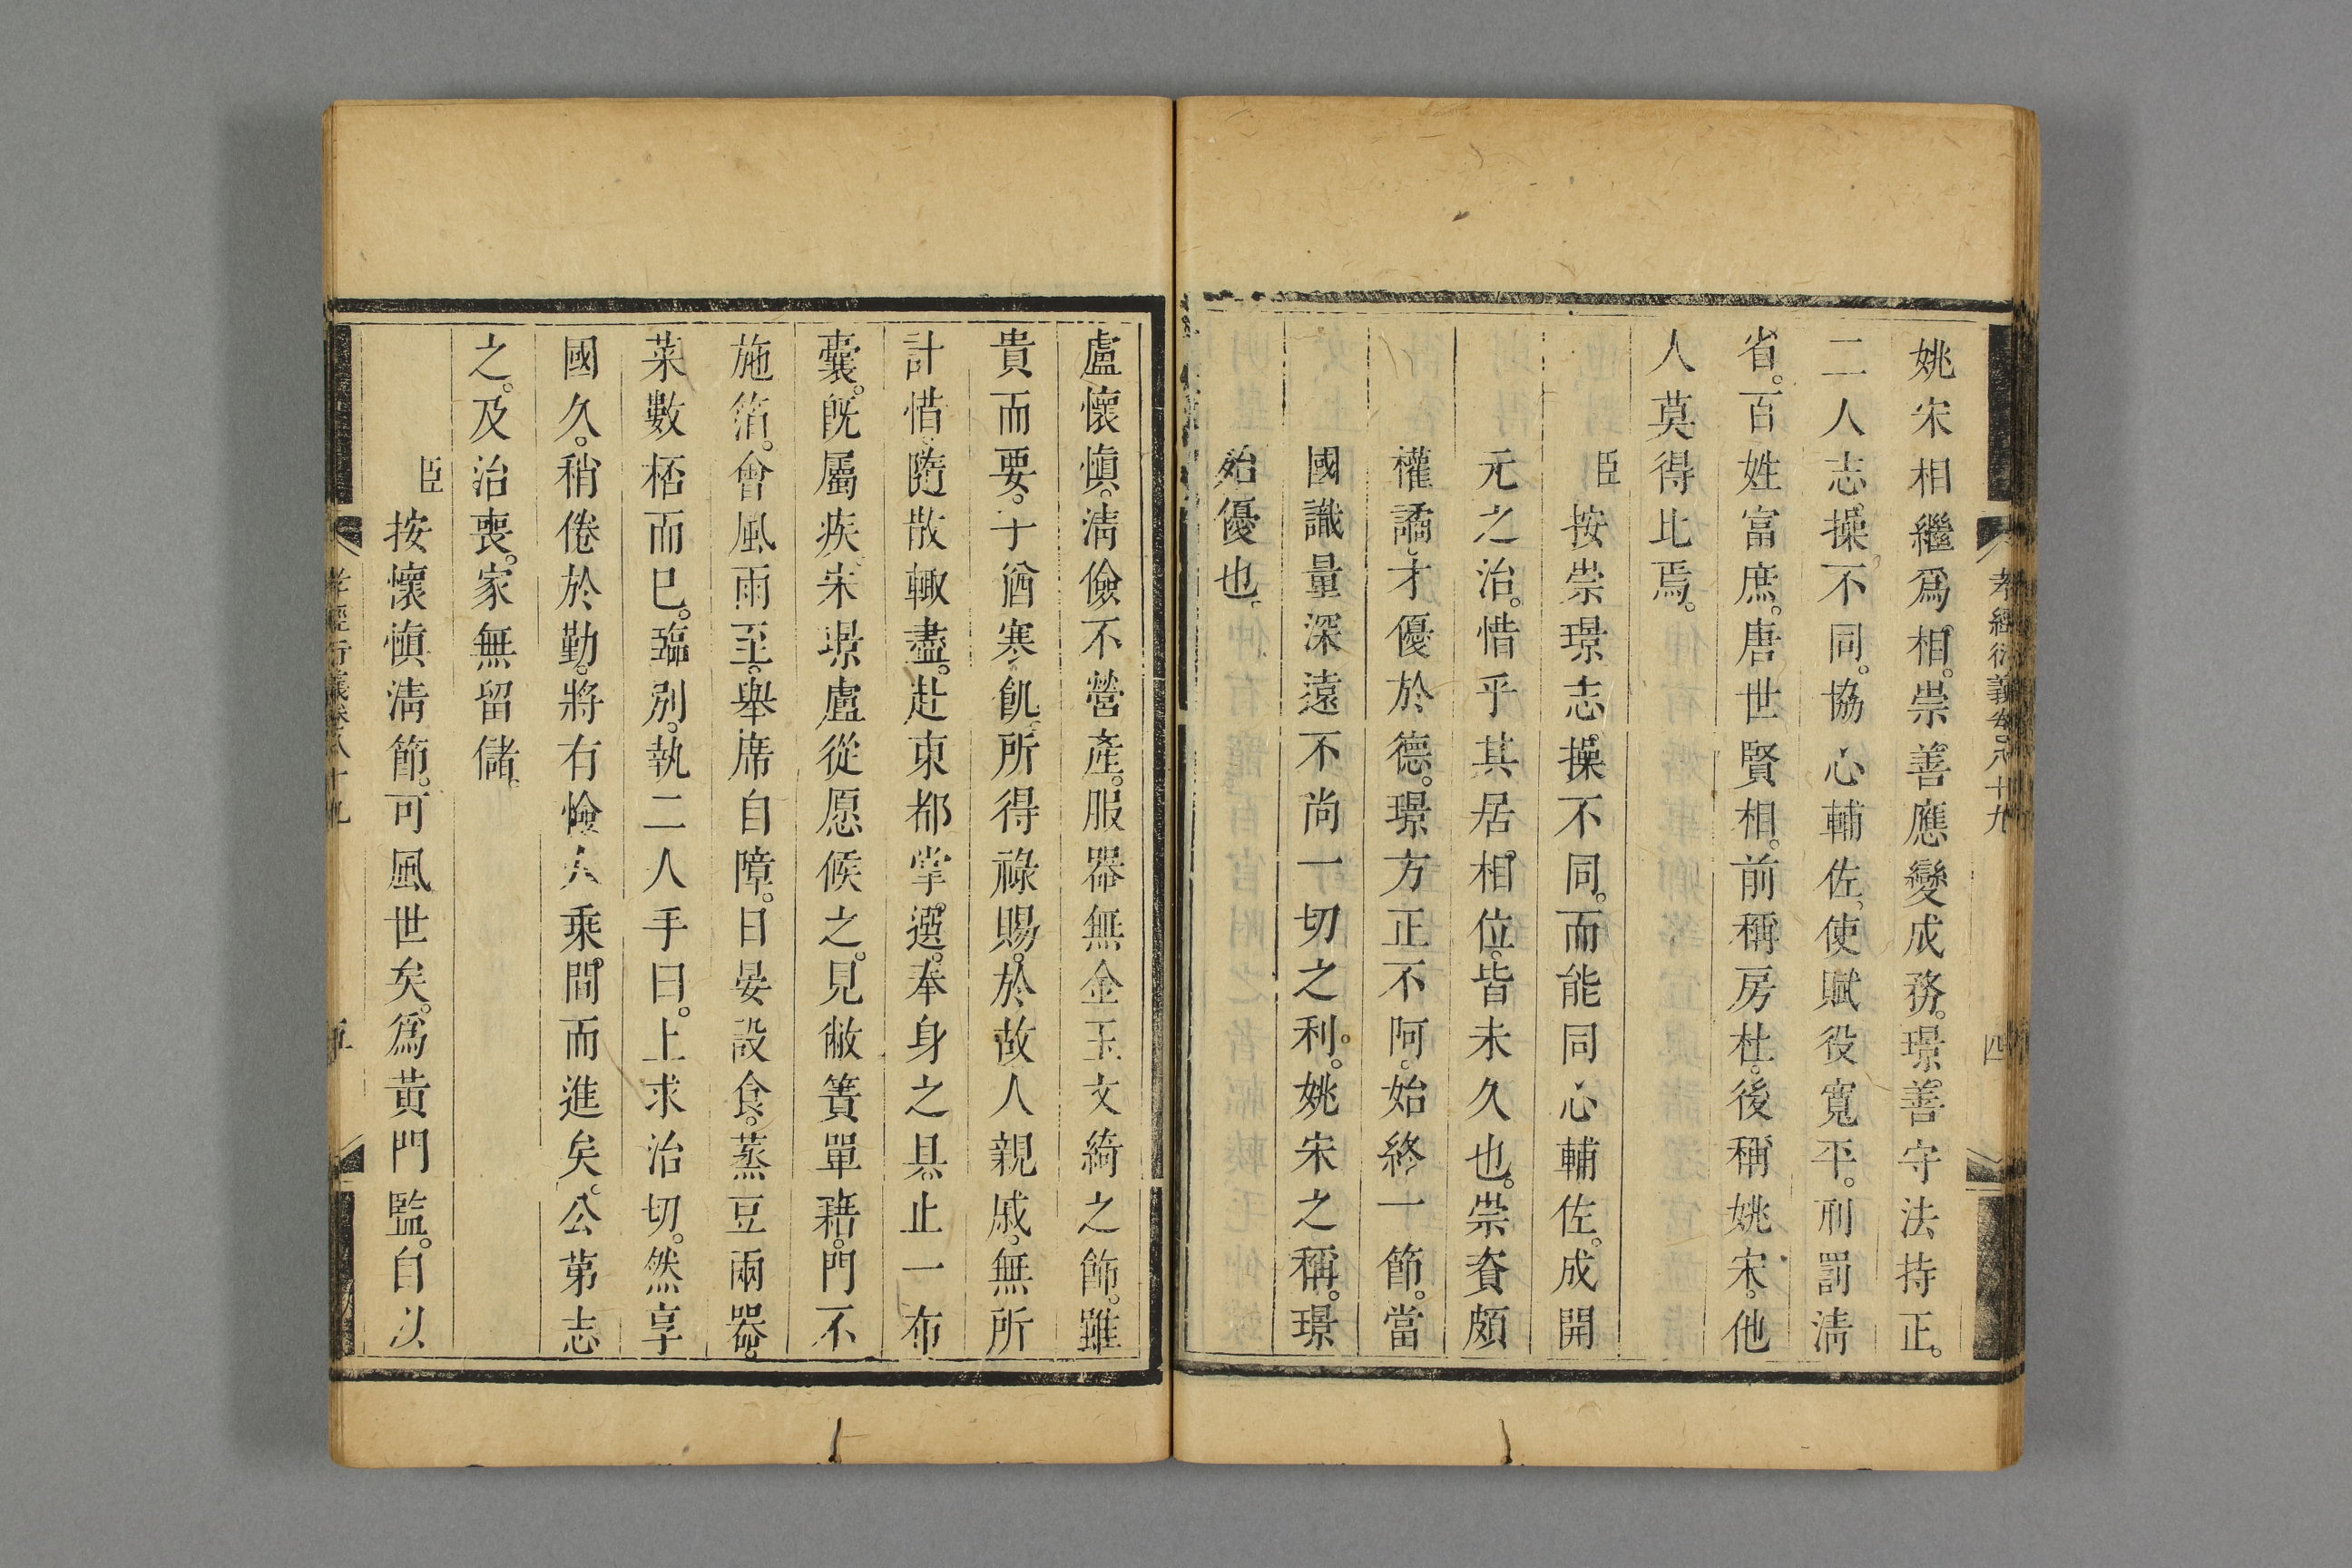 孝經衍義卷之八十九
四
姚宋相繼爲相。崇善應變成務。璟善守法持正。
二人志操。不同。協心輔佐。使賦役寬平。刑罰淸
省。百姓富庶。唐世賢相。前稱房杜。後稱姚宋。他
人莫得比焉。
臣按崇璟志操不同。而能同心輔佐。成開
元之治。惜乎其居相位。皆未久也。崇資頗
權譎。才優於德。璟方正不阿。始終一節。當
國識量深遠。不尚一切之利。姚宋之稱。璟
始優也。
盧懷愼。淸儉不營產。服器無金玉文綺之飾。雖
貴而妻。子猶寒飢。所得祿賜。於故人親戚。無所
計惜。隨散輙盡。赴東都掌選。奉身之具。止一布
囊。旣屬疾。宋璟盧從愿候之。見敝簀單藉。門不
施箔。會風雨至。舉席自障。日晏設食。蒸豆兩器。
菜數桮而已。臨別。執二人手曰。上求治切。然享
國久。稍倦於勤。將有憸人乘間而進矣。公第志
之。及治喪。家無留儲。
臣按懷愼淸節。可風世矣。爲黃門監。自以
孝經衍義卷之八十九
五